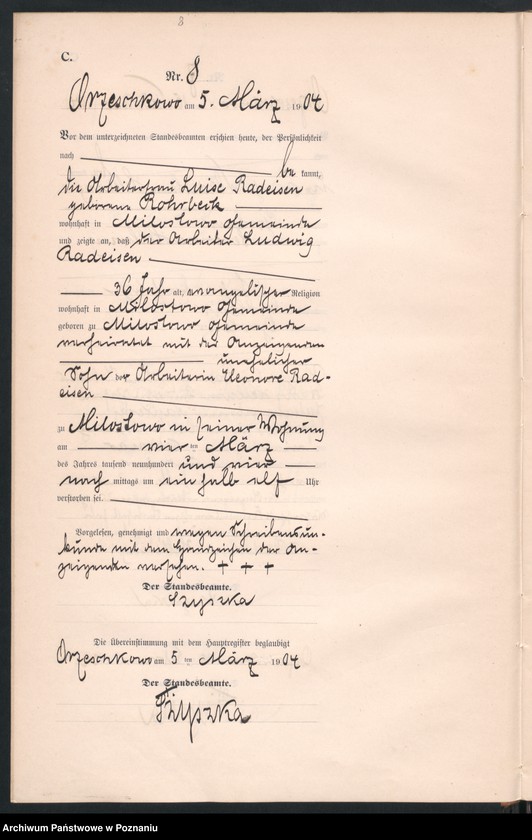 3
C.
Nr. 8
Orzeschkowo am 5. März 1904
Vor dem unterzeichneten Standesbeamten erschien heute, der Persönlichkeit
nach be kannt,
die Arbeiterfrau Luise Radeisen
geborene Rohrbeck
wohnhaft in Milostowo Gemeinde
und zeigte an, daß der Arbeiter Ludwig
Radeisen
36 Jahr alt, evangelischer Religion
wohnhaft in Milostowo Gemeinde
geboren zu Milostowo Gemeinde
verheiratet mit der Anzeigenden
unehelicher
Sohn der Arbeiterin Eleonore Rad-
eisen
zu Milostowo in seiner Wohnung
am vier ten März
des Jahres tausend neunhundert und vier
nach mittags um ein halb elf Uhr
verstorben sei.
Vorgelesen, genehmigt und wegen Schreibensun-
kunde mit dem Handzeichen der An-
zeigenden versehen. + + +
Der Standesbeamte.
Szyszka
Die Übereinstimmung mit dem Hauptregister beglaubigt
Orzeschkowo am 5 ten März 1904
Der Standesbeamte.
Szyszka
Archiwum Państwowe w Poznaniu